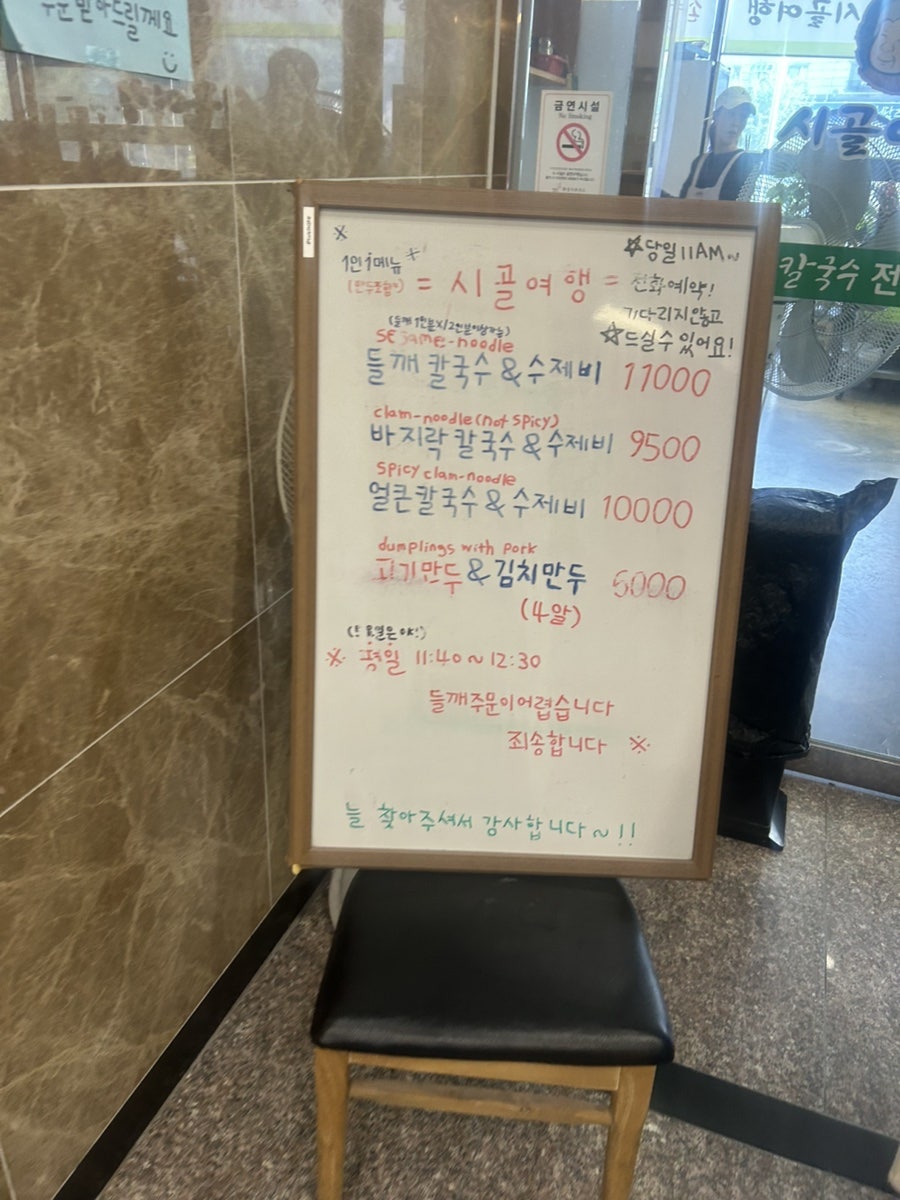 주문 받아드릴게요
금연시설
No Smoking
시골여행
시골여
칼국수 전
☆당일 11AM~
전화예약!
기다리지않고
☆드실수 있어요!
※
1인1메뉴※
(만두포함x)
= 시골여행 =
(들깨 1인분X/2인분이상가능)
Sesame-noodle
들깨 칼국수 & 수제비 11000
clam-noodle (not spicy)
바지락 칼국수 & 수제비 9500
spicy clam-noodle
얼큰칼국수 & 수제비 10000
dumplings with pork
고기만두 & 김치만두 6000
(4알)
※ 평일 11:40 ~ 12:30
들깨주문이어렵습니다
죄송합니다 ※
늘 찾아주셔서 감사합니다~!!